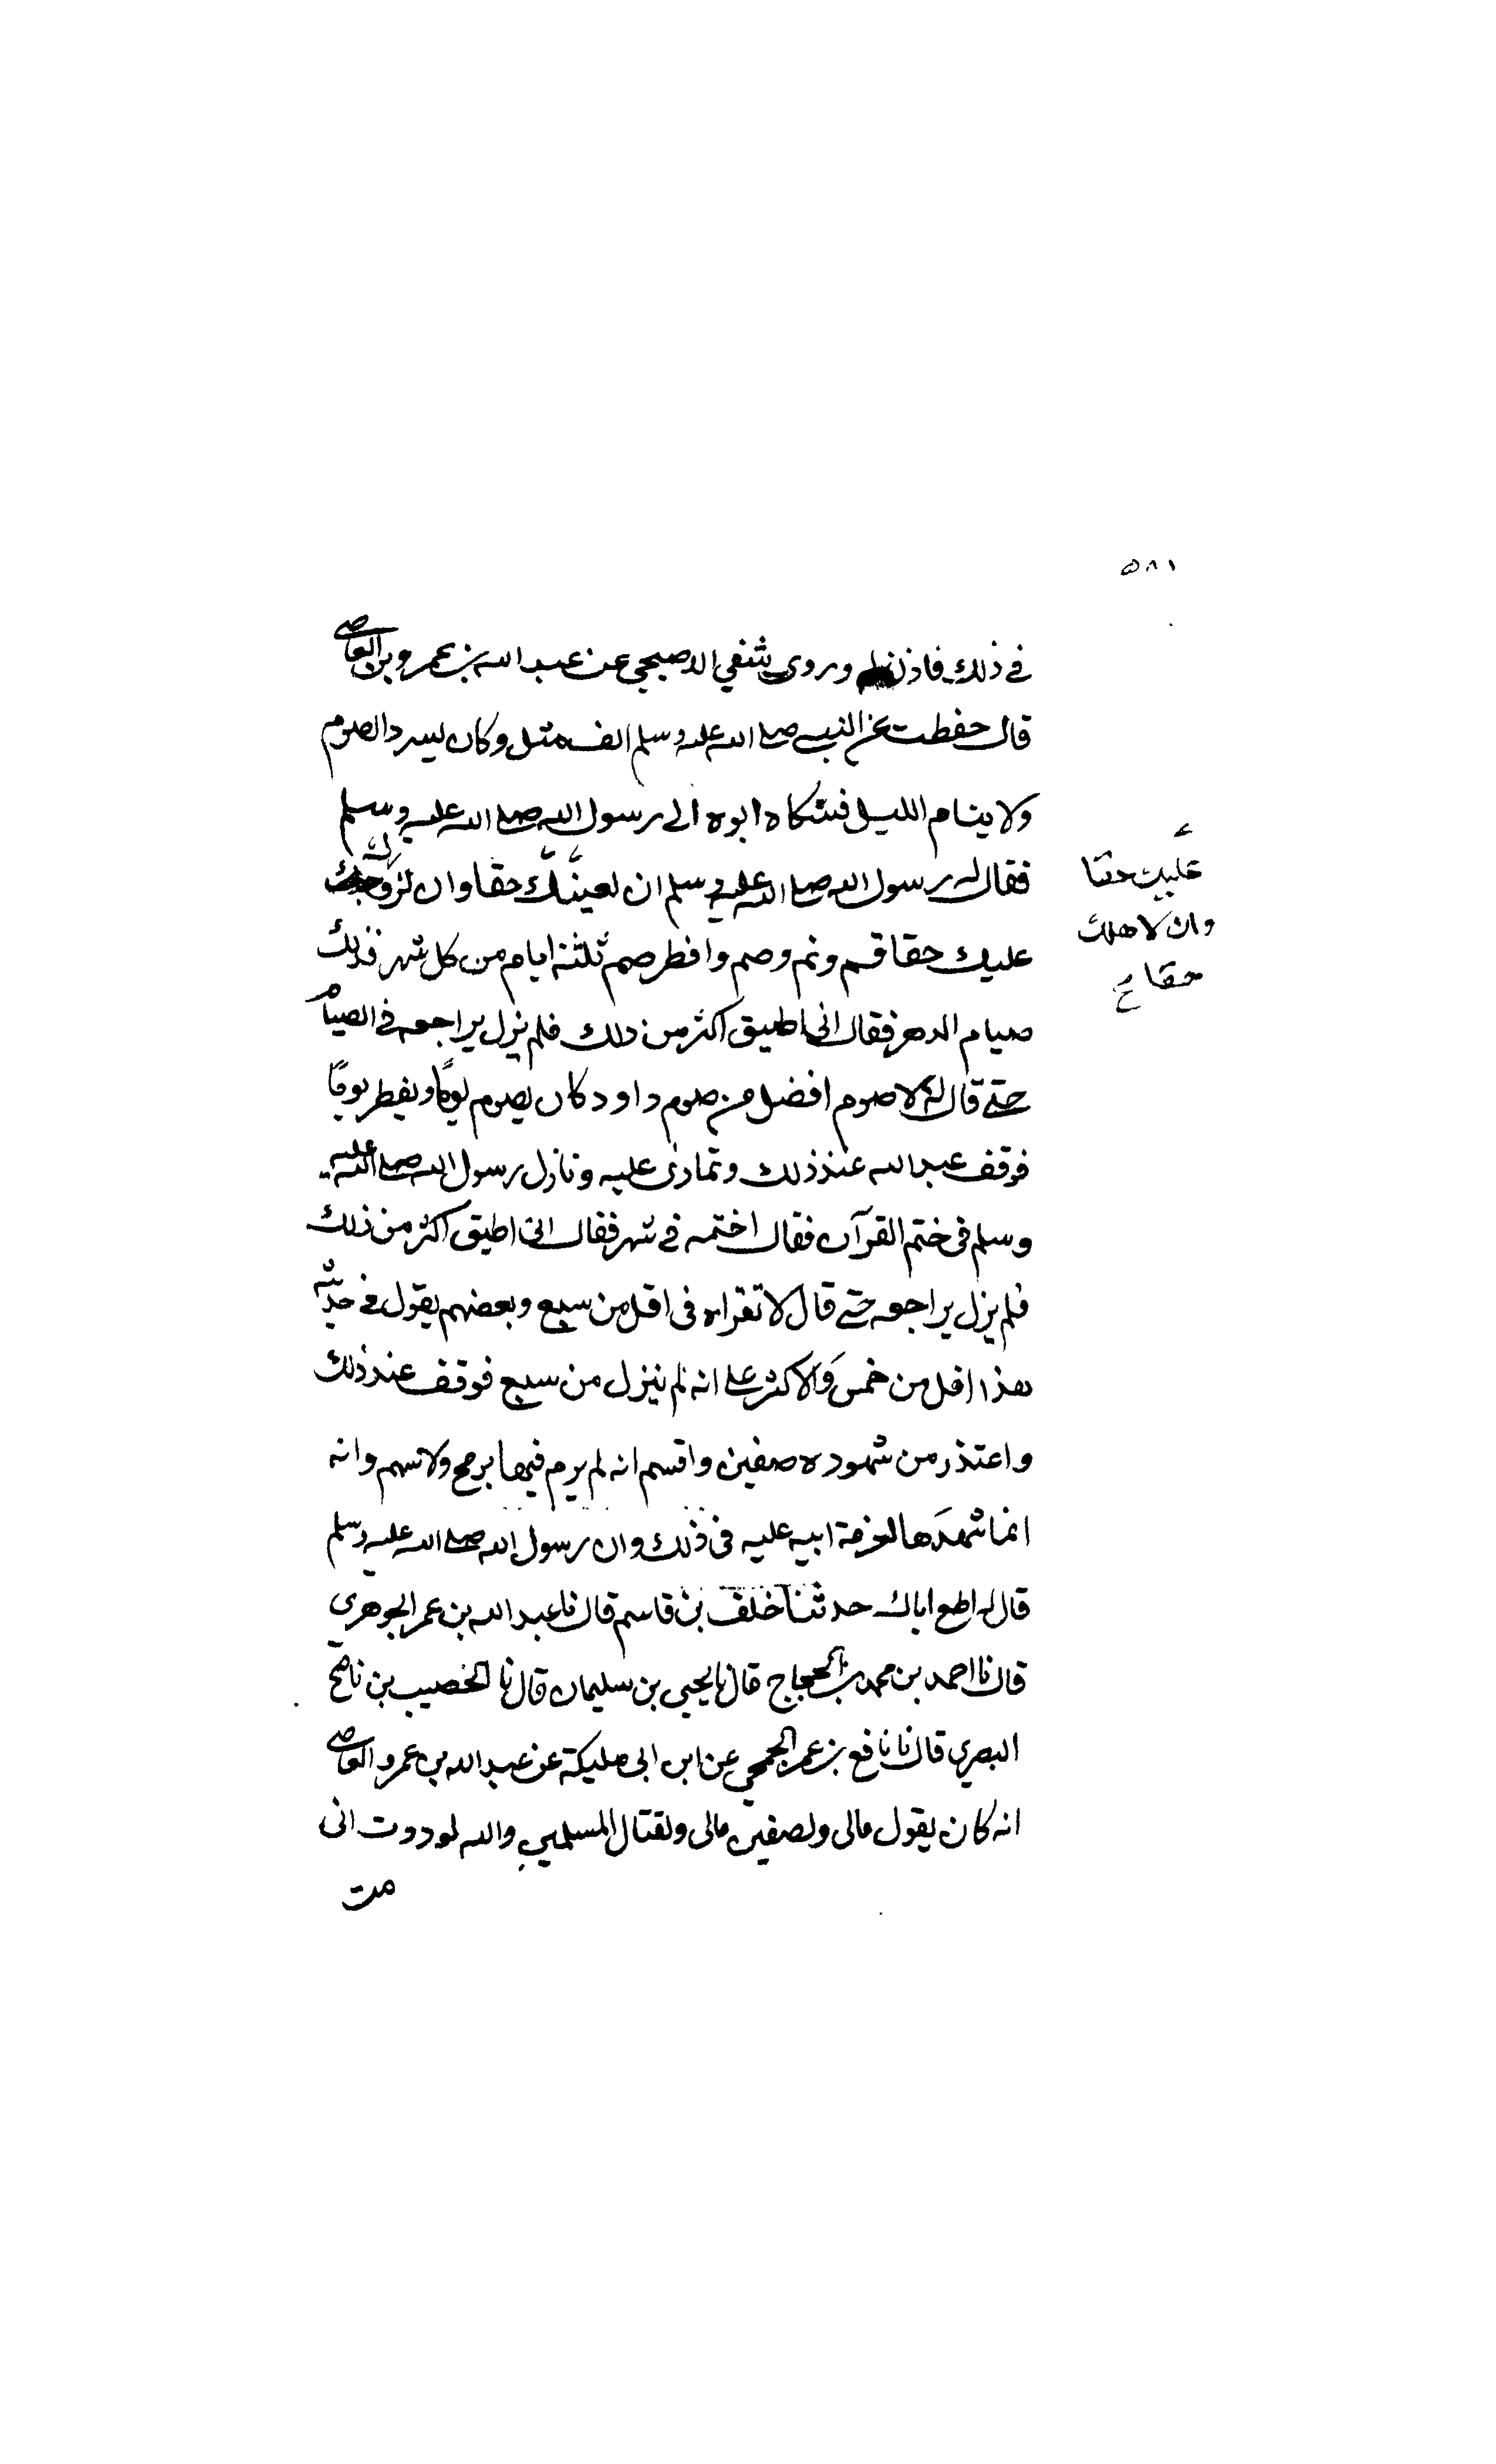 ٥٨١
في ذلك فاذن له وروى شفي الاصبحي عن عبد الله بن عمرو بن العاصي
قال حفظت عن النبي صلى الله عليه وسلم الف مثل وكان يسرد الصوم
ولا ينام الليل فشكاه ابوه الى رسول الله صلى الله عليه وسلم
فقال له رسول الله صلى الله عليه وسلم ان لعينك حقا وان لزوجك
عليك حقا
وان لاهلك
حقا
عليك حقا قم ونم وصم وافطر صم ثلثة ايام من كل شهر فذلك
صيام الدهر فقال اني اطيق اكثر من ذلك فلم يزل يراجعه في الصيام
حتى قال له لا صوم افضل من صوم داود كان يصوم يوما ويفطر يوما
فوقف عبد الله عند ذلك وتمادى عليه ونازل رسول الله صلى الله عليه
وسلم في ختم القرآن فقال اختمه في شهر فقال اني اطيق اكثر من ذلك
فلم يزل يراجعه حتى قال لا تقراه في اقل من سبع وبعضهم يقول في حديثه
هذا اقل من خمس والاكثر على انه لم ينزل من سبع فوقف عند ذلك
واعتذر من شهوده صفين واقسم انه لم يرم فيها برمح ولا سهم وانه
انما شهدها لعزمة ابيه عليه في ذلك وان رسول الله صلى الله عليه وسلم
قال له اطع اباك حدثنا خلف بن قاسم قال نا عبد الله بن عمر الجوهري
قال نا احمد بن محمد بن الحجاج قال نا يحيى بن سليمان قال نا الخصيب بن ناصح
البصري قال نا نافع بن عمر الجمحي عن ابن ابي مليكة عن عبد الله بن عمرو العاصي
انه كان يقول مالى ولصفين مالى ولقتال المسلمين والله لوددت انى
مت